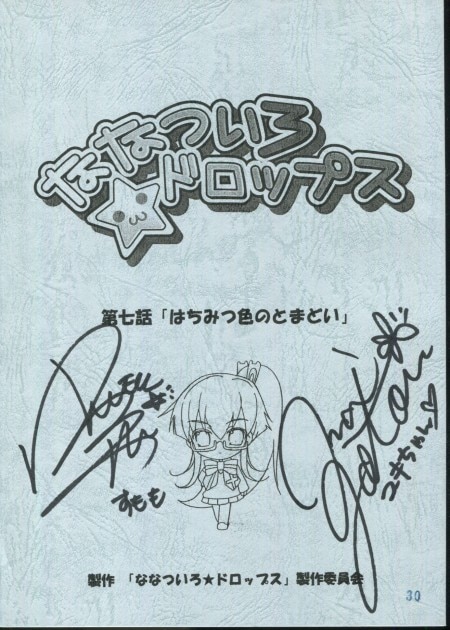 ななついろ
★ドロップス
第七話「はちみつ色のとまどい」
すもも
ユキちゃん♡
製作 「ななついろ★ドロップス」製作委員会
30